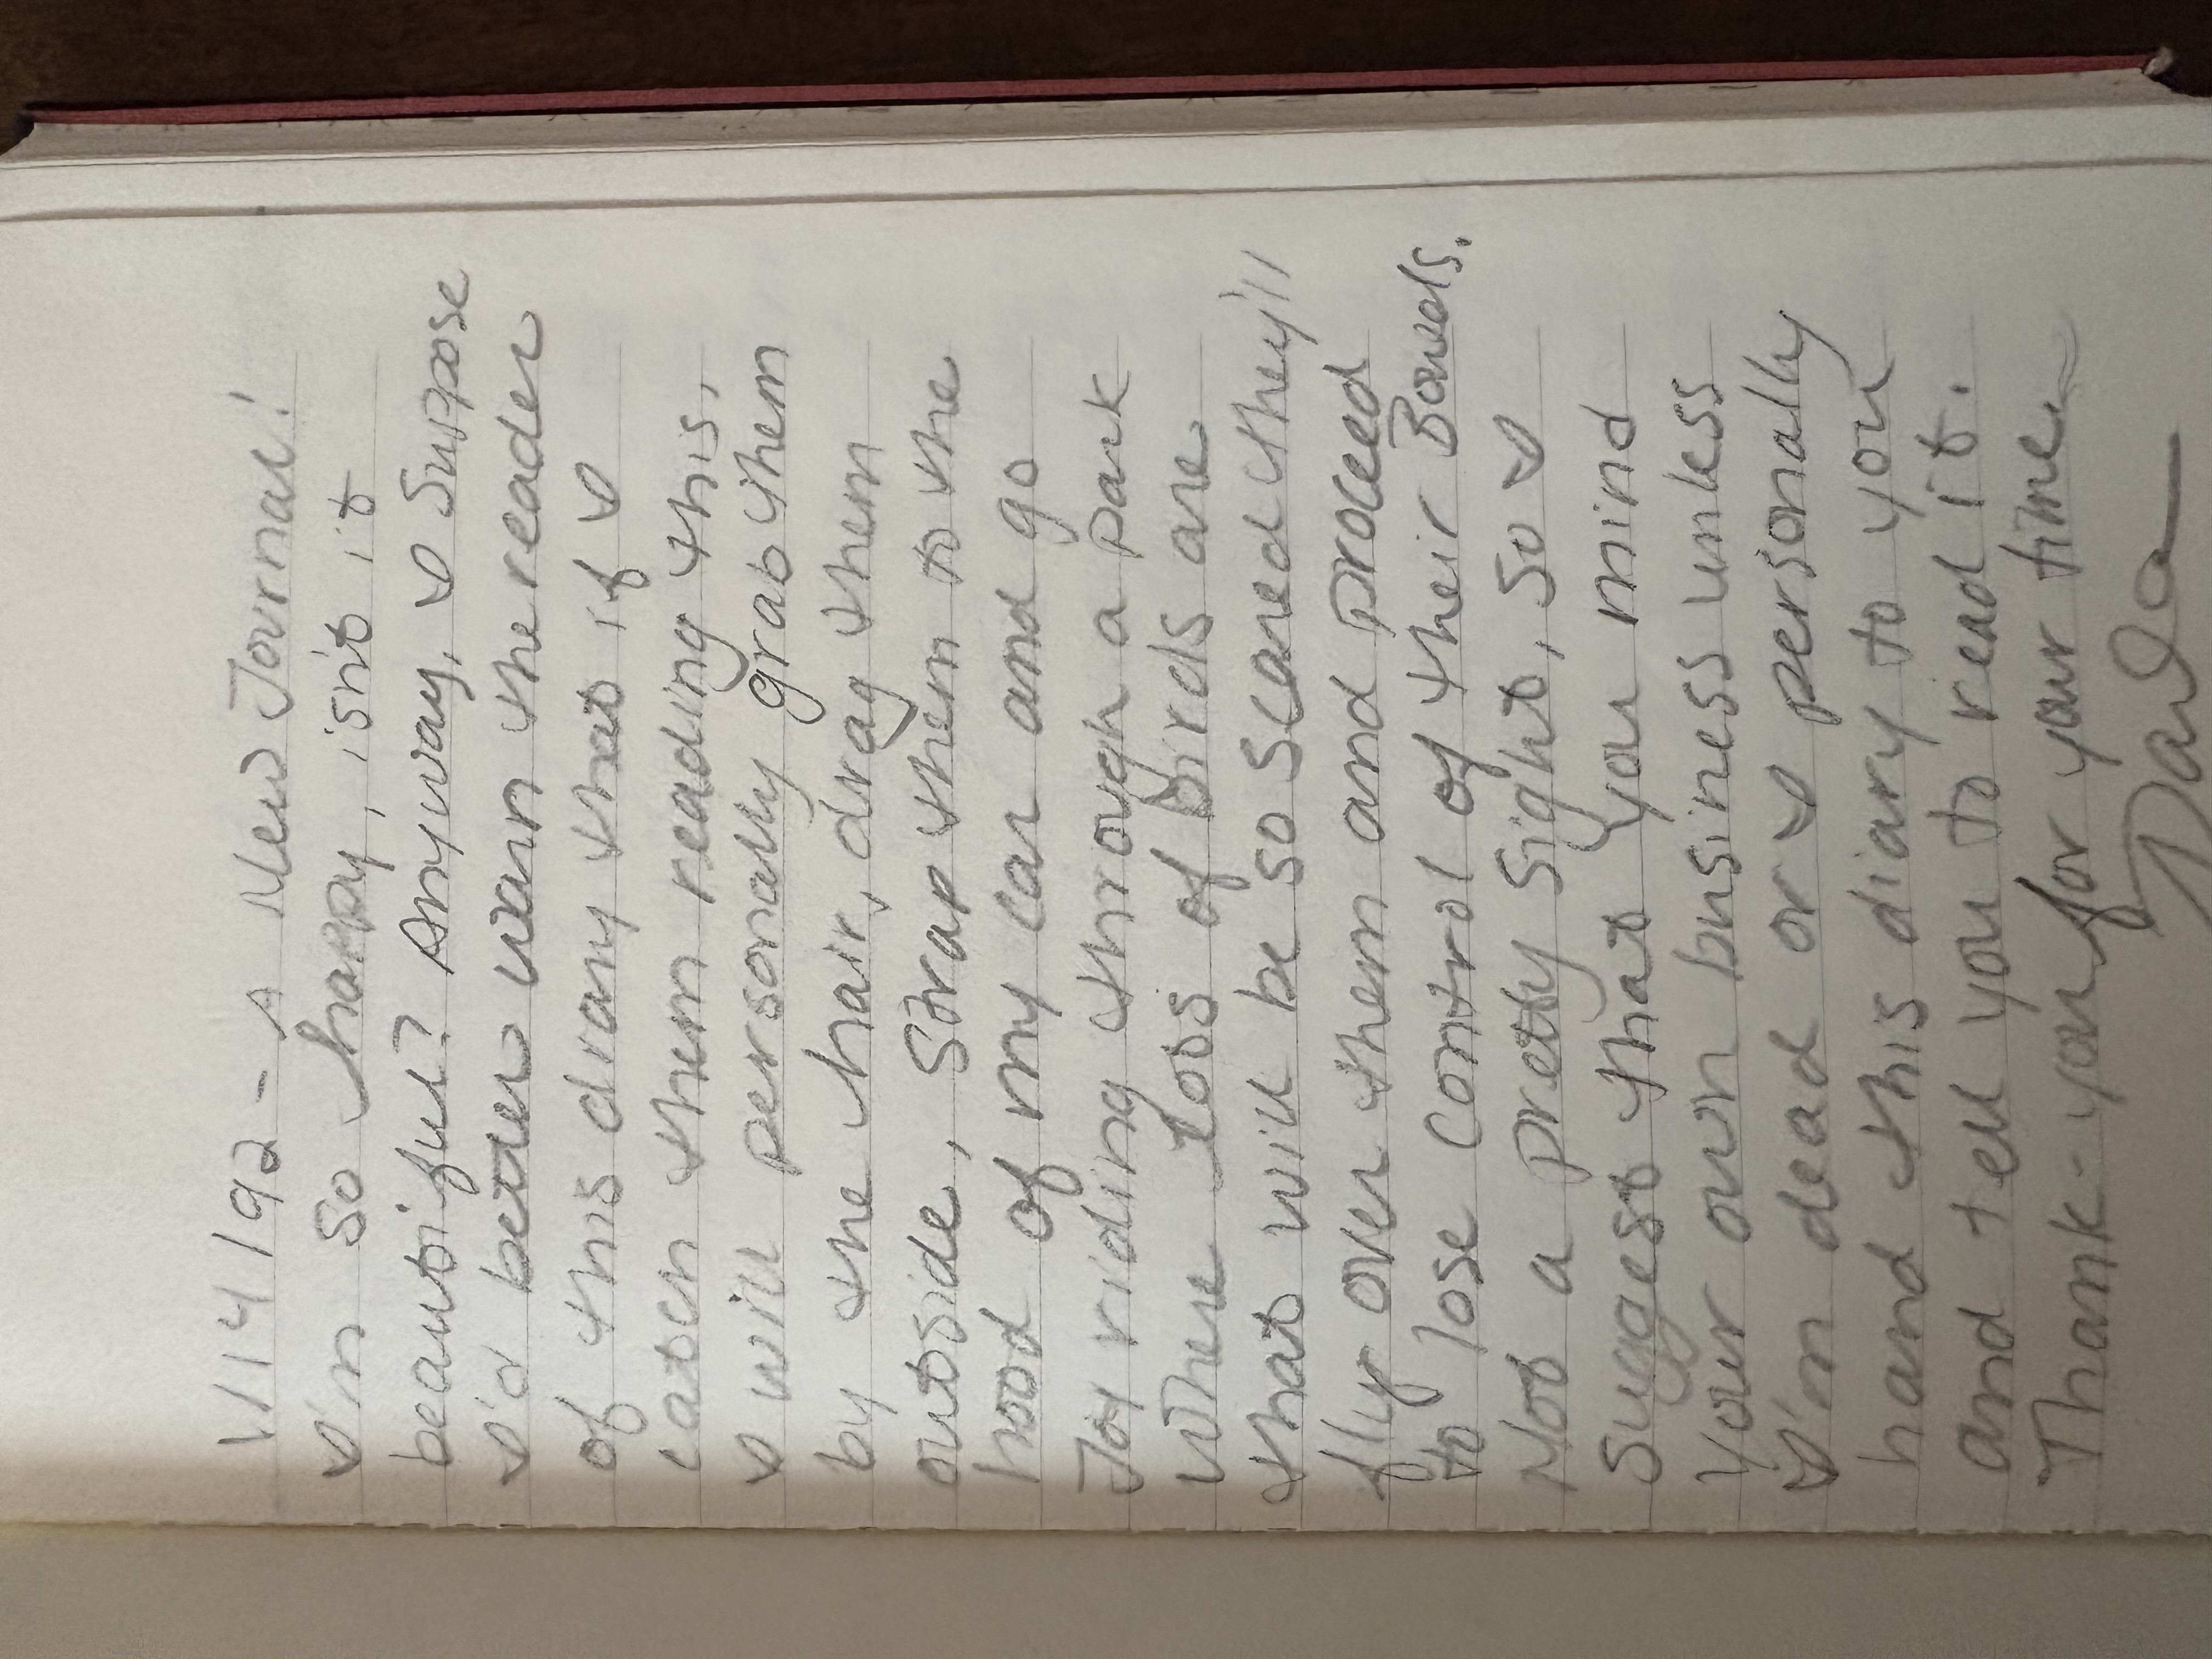 1/14/92 - A New Journal!
I'm so happy, isn't it
beautiful? Anyway, I suppose
I'd better warn the reader
of this diary that if I
catch them reading this,
I will personally grab them
by the hair, drag them
outside, strap them to the
hood of my car and go
Joy riding through a park
where Lots of birds are
that will be so scared they'll
fly over them and proceed
to lose control of their Bowels.
Not a pretty sight, so I
suggest that you mind
Your own business unless
I'm dead or I personally
hand this diary to you
and tell you to read it.
Thank-you for your time